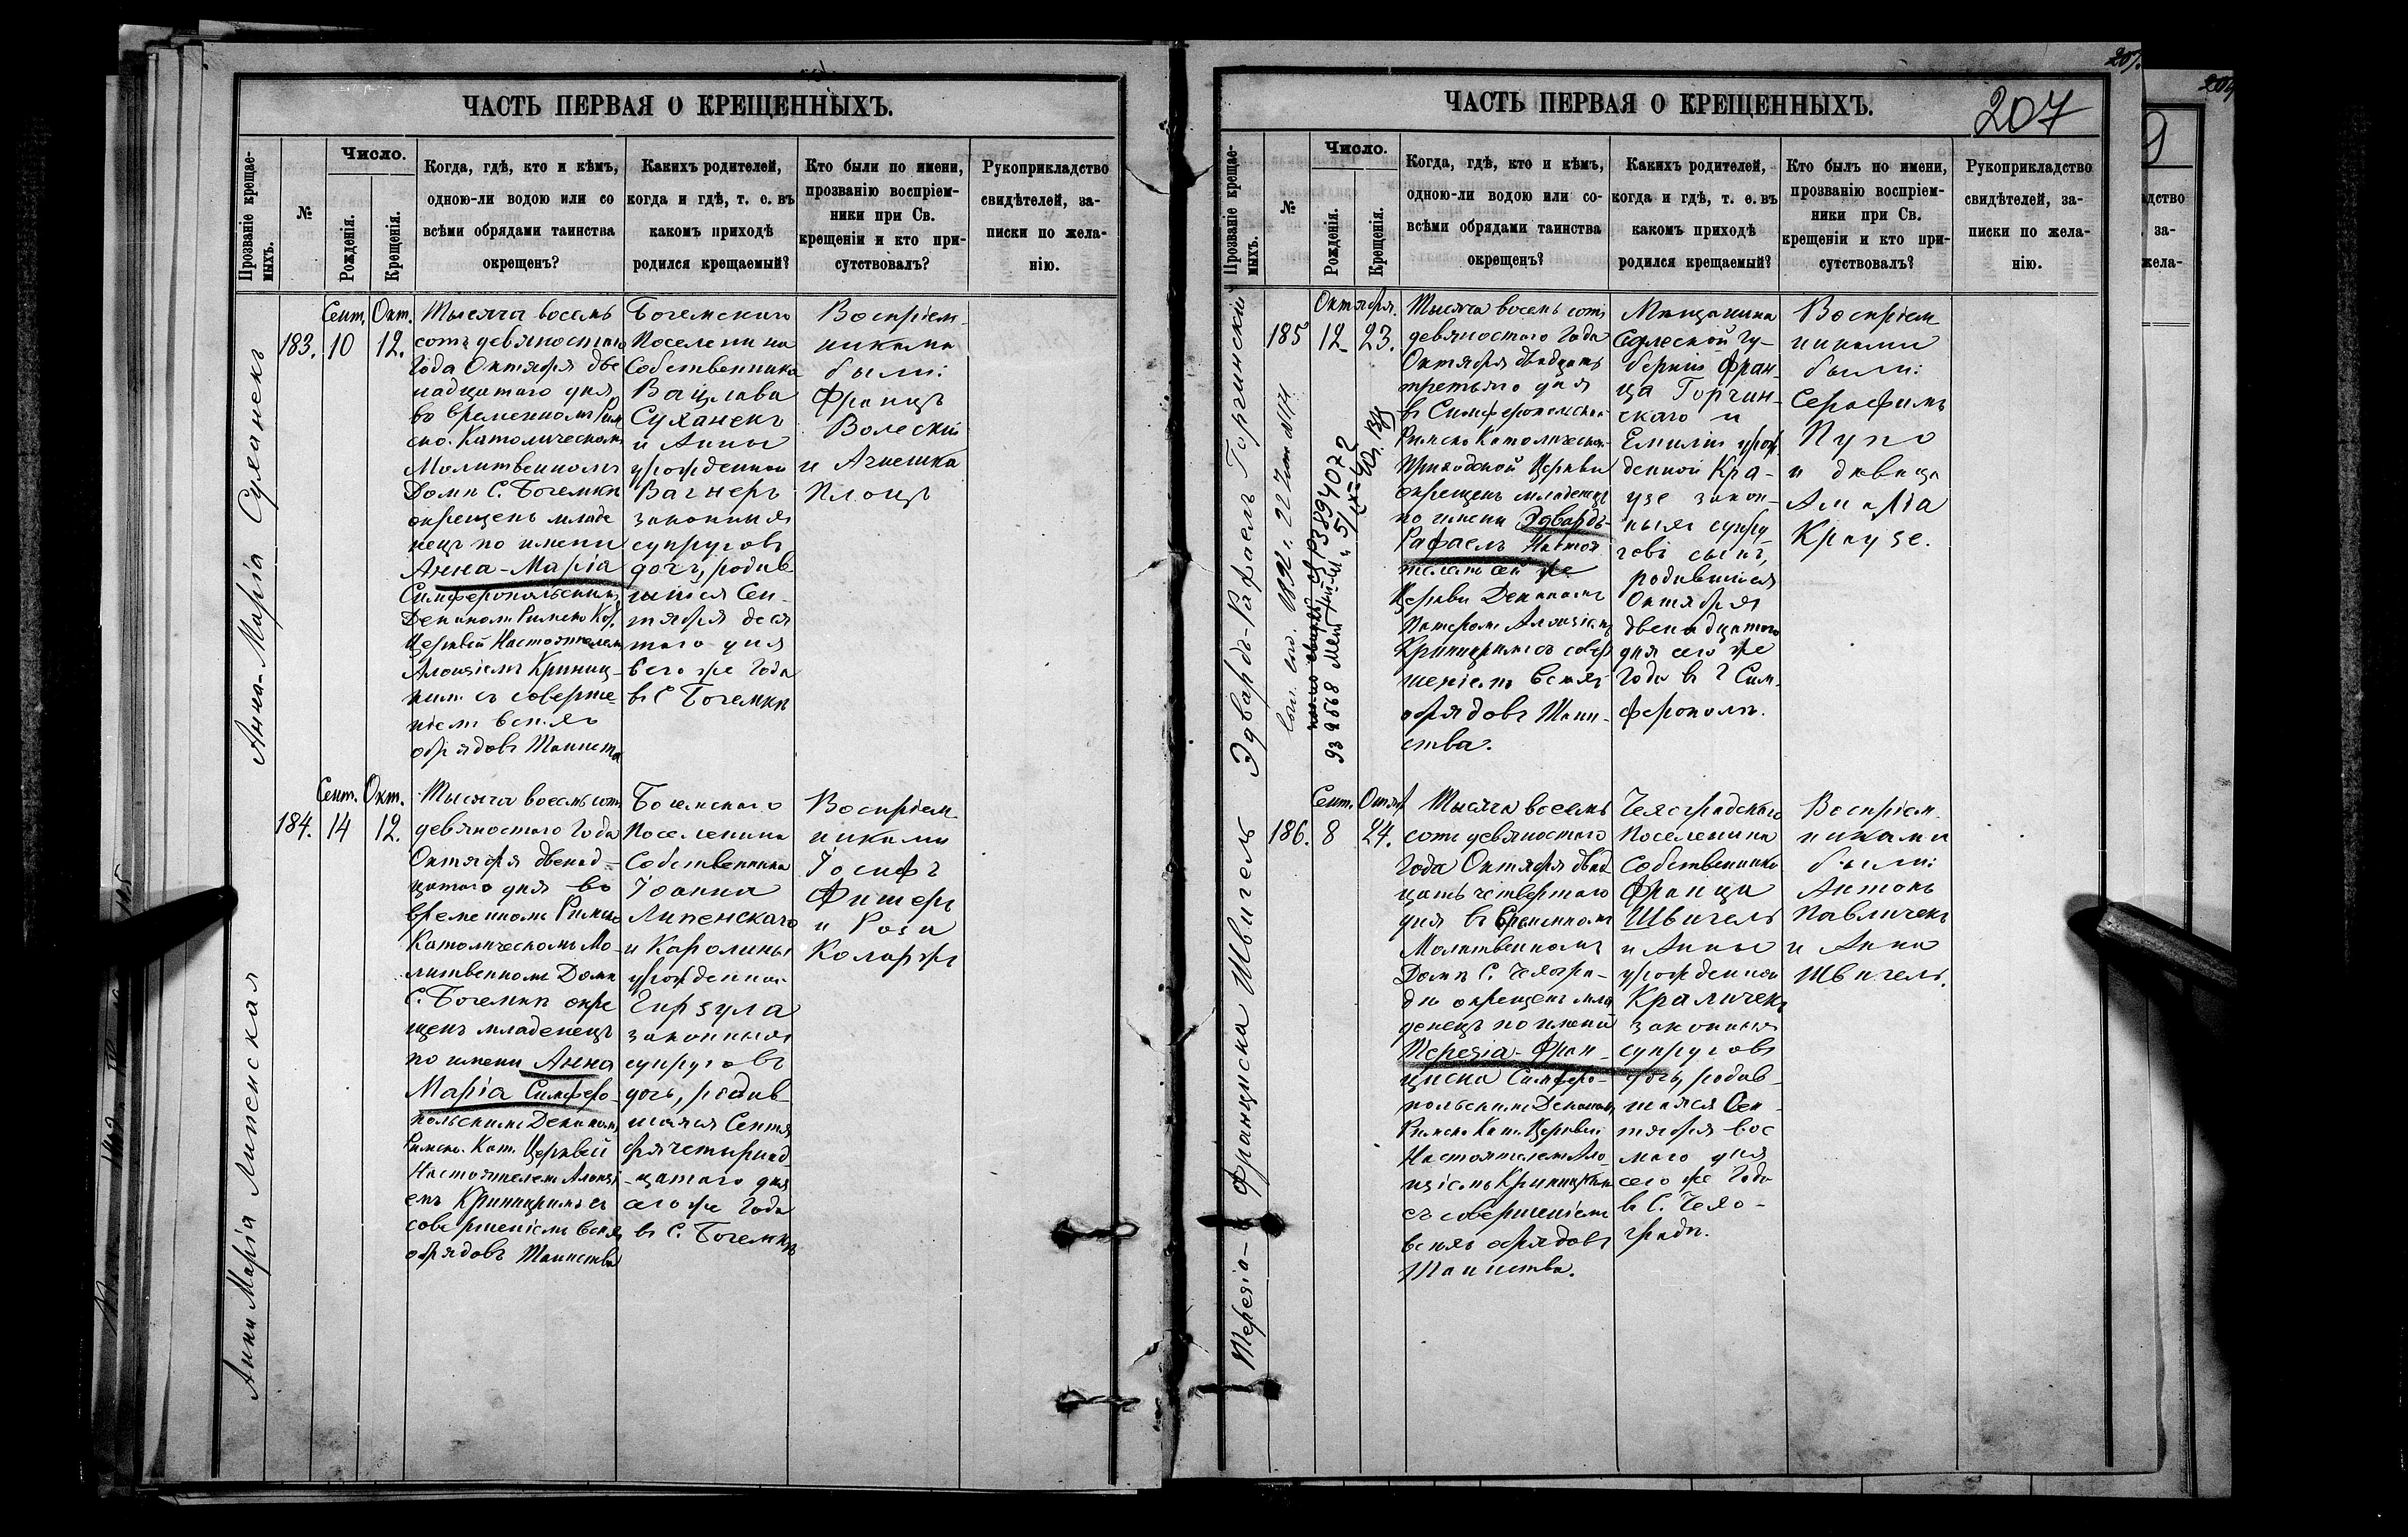 ЧАСТЬ ПЕРВАЯ О КРЕЩЕННЫХЪ.
Прозваніе крещае-
мыхъ.
№
Число.
Рожденія.
Крещенія.
Когда, гдѣ, кто и кѣмъ,
одною-ли водою или со
всѣми обрядами таинства
окрещенъ?
Какихъ родителей,
когда и гдѣ, т. е. въ
какомъ приходѣ
родился крещаемый?
Кто были по имени,
прозванію воспріем-
ники при Св.
крещеніи и кто при-
сутствовалъ?
Рукоприкладство
свидѣтелей, за-
писки по жела-
нію.
Анна-Марія Суханекъ
183.
Сент.
10
Окт.
12.
Тысяча восемь
сотъ девяностаго
Года Октября две
надцатаго дня
во временномъ Рим
ско. Католическомъ
Молитвенномъ
Домѣ С. Богемкѣ
окрещенъ младе
нецъ по имени
Анна-Марія
Симферопольскимъ
Деканомъ Римско Кат.
Церквей Настоятелемъ
Алоизіемъ Криниц-
кимъ съ соверше-
ніемъ всѣхъ
обрядовъ Таинства
Богемскаго
Поселенина
Собственника
Вацлава
Суханекъ
и Анны
урожденной
Вагнеръ
законныхъ
супруговъ
дочь, родив
шаяся Сен-
тября деся
таго дня
сего же Года
въ С Богемкѣ
Воспріем-
никами
были:
Францъ
Волескій
и Агнешка
Плоцъ
Анна Марія Липенская
184.
Сент.
14
Окт.
12.
Тысяча восемь сотъ
девяностаго Года
Октября двенад-
цатаго дня во
временномъ Римско
Католическомъ Мо-
литвенномъ Домѣ
С. Богемкѣ окре
щенъ младенецъ
по имени Анна
Марія Симферо-
польскимъ Деканомъ
Римско. Кат. Церквей
Настоятелемъ Алоизі
емъ Криницкимъ съ
совершеніемъ всѣхъ
обрядовъ Таинства
Богемскаго
Поселенина
Собственника
Іоанна
Липенскаго
и Каролины
урожденной
Гирзула
законныхъ
супруговъ
дочь, родив-
шаяся Сентя
бря четырнад-
цатаго дня
сего же Года
въ С. Богемкѣ
Воспріем-
никами
Іосифъ
Фишеръ
и Роза
Коларжъ
ЧАСТЬ ПЕРВАЯ О КРЕЩЕННЫХЪ.
207
Прозваніе крещае-
мыхъ.
№
Число.
Рожденія.
Крещенія.
Когда, гдѣ, кто и кѣмъ,
одною-ли водою или со-
всѣми обрядами таинства
окрещенъ?
Какихъ родителей,
когда и гдѣ, т. е. въ
какомъ приходѣ
родился крещаемый?
Кто былъ по имени,
прозванію воспріем-
ники при Св.
крещеніи и кто при-
сутствовалъ?
Рукоприкладство
свидѣтелей, за-
писки по жела-
нію.
Эдвардъ-Рафаелъ Горчинскій
185
Октября.
12
23.
Тысяча восемь сотъ
девяностаго Года
Октября двадцать
третьяго дня
въ Симферопольской
Римско Католической
Приходской Церкви
окрещенъ младенецъ
по имени Эдвардъ-
Рафаелъ Настоя
телемъ сей же
Церкви Деканомъ
Патеромъ Алоизіемъ
Криницкимъ съ совер
шеніемъ всѣхъ
обрядовъ Таин-
ства.
Мещанина
Седлеской Гу-
берніи Фран-
ца Горчин-
скаго и
Емиліи урож
денной Кра-
узе закон-
ныхъ супру
говъ сынъ,
родившійся
Октября
двенадцатаго
дня сего же
Года въ Г Сим-
ферополѣ.
Воспріем
никами
были:
Серафимъ
Пупо
и девица
Амалія
Краузе.
Терезія-Францишка Швигель
186.
Сент.
8
Октяб
24.
Тысяча восемь
сотъ девяностаго
Года Октября двад
цать четвертаго
дня въ Временномъ
Молитвенномъ
Домѣ С. Чехогра-
дѣ окрещенъ мла
денецъ по имени
Терезія-Фран-
циска Симферо-
польскимъ Деканомъ
Римско Кат. Церквей
Настоятелемъ Ало-
изіемъ Криницкимъ
съ совершеніемъ
всѣхъ обрядовъ
Таинства.
Чехоградскаго
Поселенина
Собственника
Франца
Швигель
и Анны
урожденной
Краличекъ
законныхъ
супруговъ
дочь, родив-
шаяся Сен-
тября вос
маго дня
сего же Года
въ С. Чехо-
градѣ.
Воспріем-
никами
были:
Антонъ
Павличекъ
и Анна
Швигель.